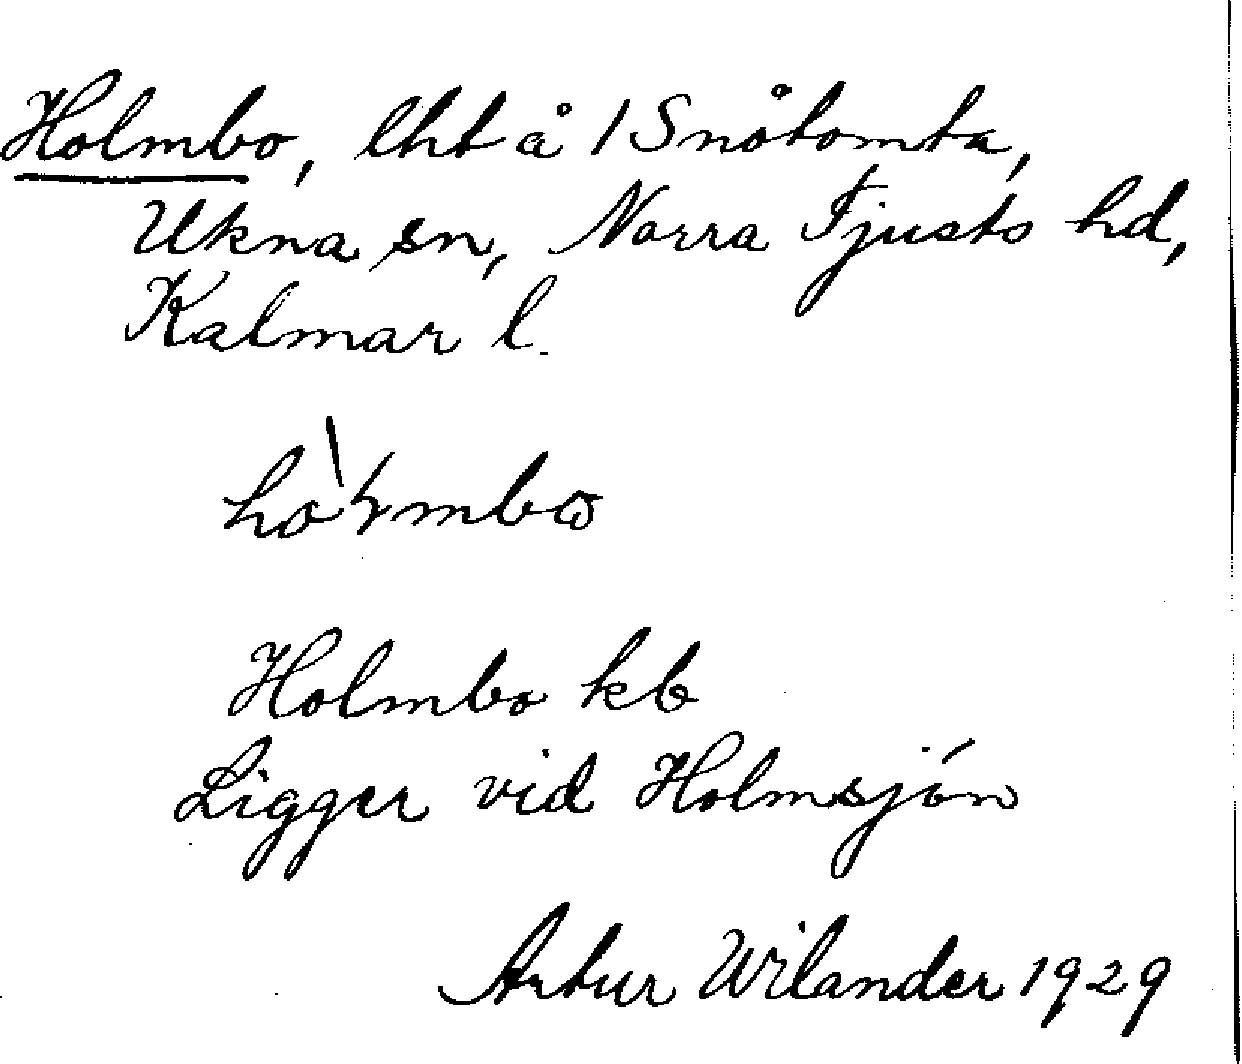 Holmbo, lht å 1 Snåtomta,
Ukna sn, Norra Tjusts hd,
Kalmar l.
Holmbo kb
Ligger vid Holmsjön
Artur Wilander 1929